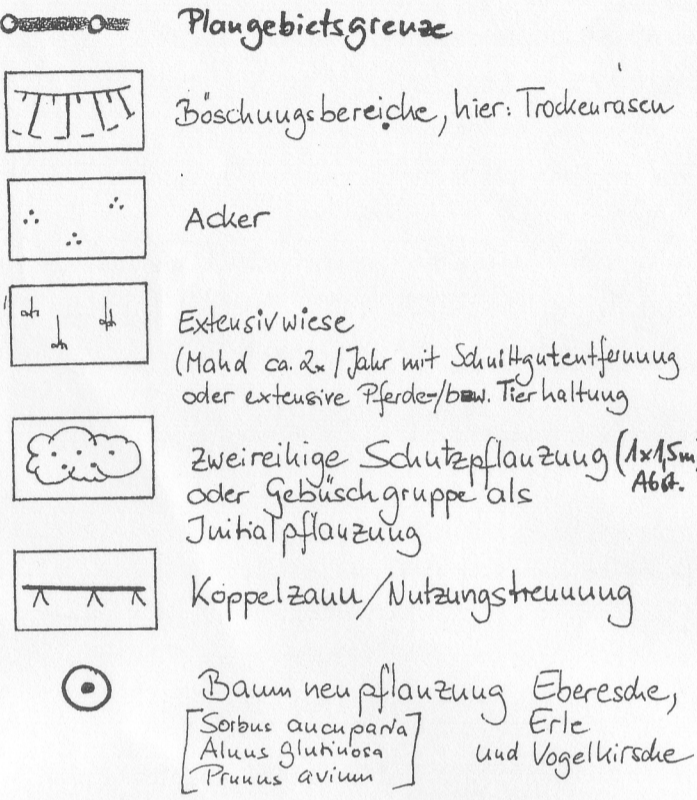 Plangebietsgrenze
Böschungsbereiche, hier: Trockenrasen
Acker
Extensivwiese
(Mahd ca. 2x / Jahr mit Schnittgutentfernung
oder extensive Pferde-/bzw. Tierhaltung
zweireihige Schutzpflanzung (1x1,5m
Abst.
oder Gebüschgruppe als
Initialpflanzung
Koppelzaun/Nutzungstrennung
Baumneupflanzung Eberesche,
[Sorbus aucuparia] Erle
Alnus glutinosa und Vogelkirsche
Prunus avium